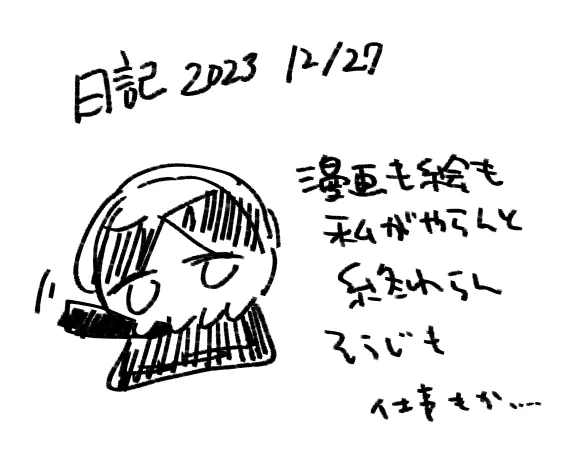 日記 2023 12/27
漫画も絵も
私がやらんと
終わらん
そうじも
仕事もか....